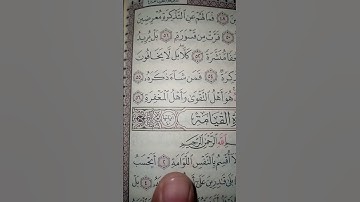 فَمَا لَهُمْ عَنِ التَّذْكِرَةِ مُعْرِضِينَ
فَرَّتْ مِن قَسْوَرَةٍ ٥١ بَلْ يُرِيدُ
مُّنَشَّرَةً ٥٢ كَلَّا بَل لَّا يَخَافُونَ
فَمَن شَاءَ ذَكَرَهُ ٥٥
هُوَ أَهْلُ التَّقْوَىٰ وَأَهْلُ الْمَغْفِرَةِ ٥٦
الْقِيَامَةِ
اللَّهِ الرَّحْمَٰنِ الرَّحِيمِ
أُقْسِمُ بِالنَّفْسِ اللَّوَّامَةِ ٢ أَيَحْسَبُ
قَادِرِينَ عَلَىٰ